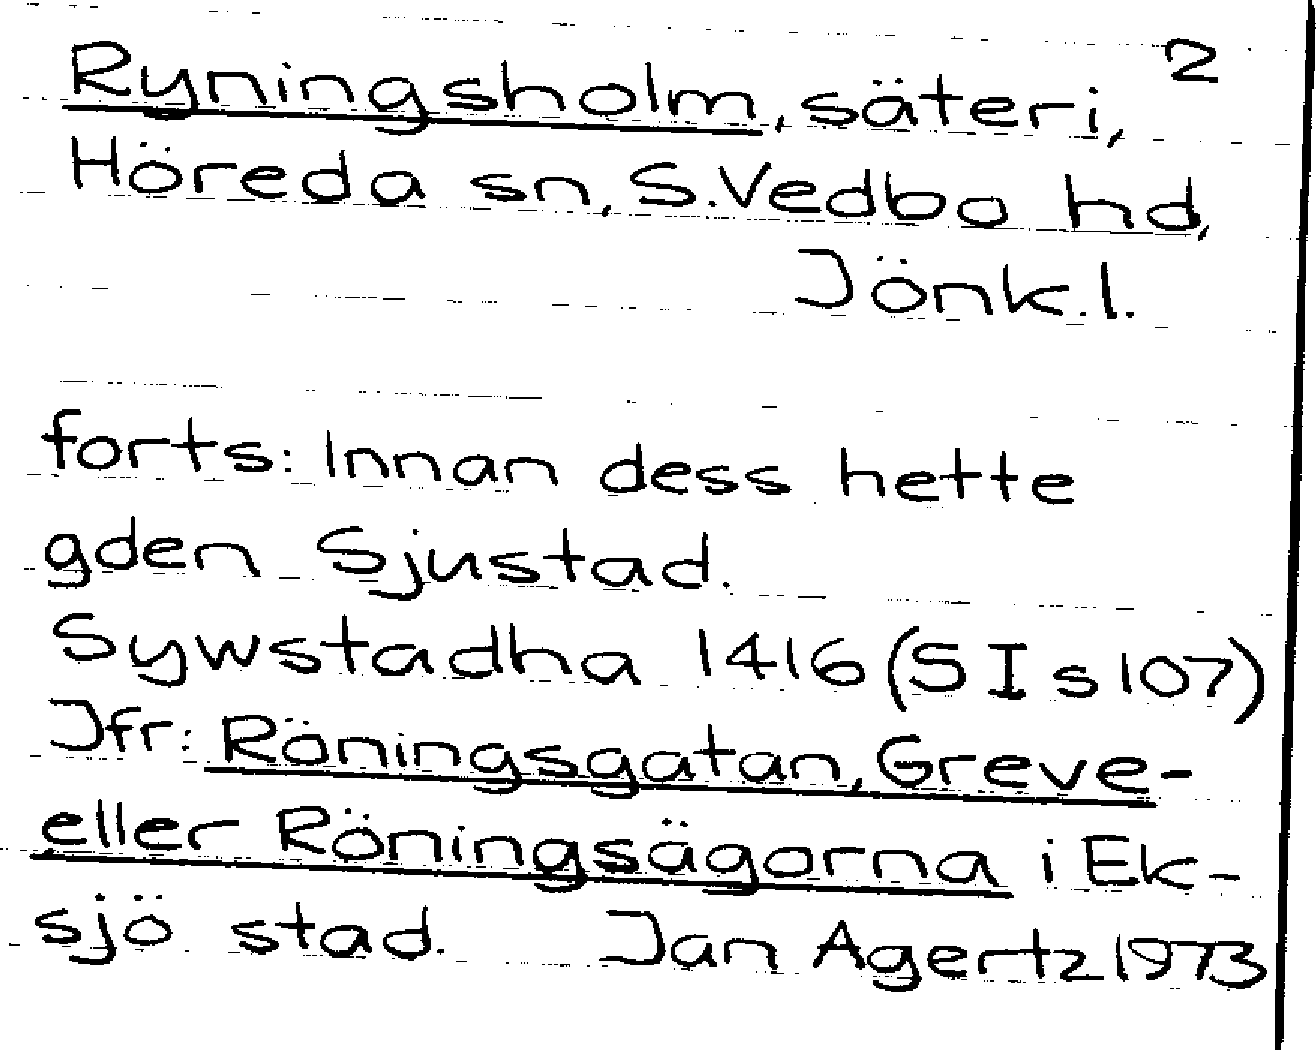 2
Ryningsholm, säteri,
Höreda sn, S.Vedbo hd,
Jönk.l.
forts: Innan dess hette
gden Sjustad.
Sywstadha 1416 (S I s 107)
Jfr: Röningsgatan, Greve-
eller Röningsägorna i Ek-
sjö stad. Jan Agertz 1973